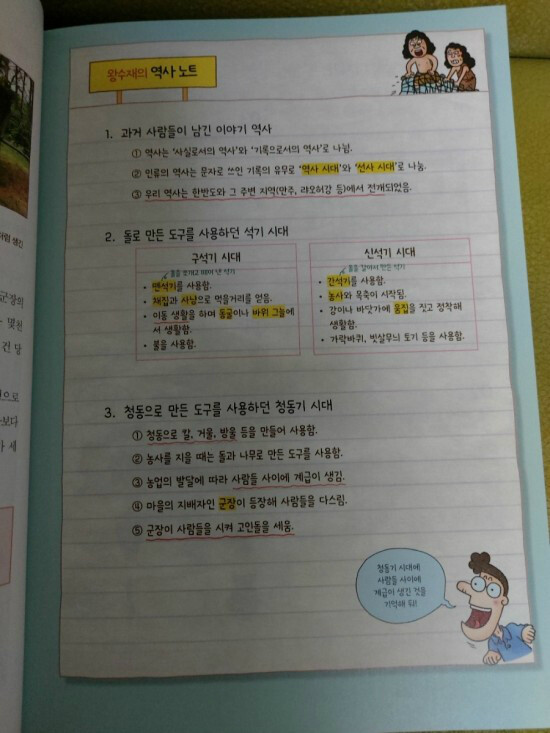 왕수재의 역사 노트
1. 과거 사람들이 남긴 이야기 역사
① 역사는 ‘사실로서의 역사’와 ‘기록으로서의 역사’로 나뉨.
② 인류의 역사는 문자로 쓰인 기록의 유무로 ‘역사 시대’와 ‘선사 시대’로 나눔.
③ 우리 역사는 한반도와 그 주변 지역(만주, 랴오허강 등)에서 전개되었음.
2. 돌로 만든 도구를 사용하던 석기 시대
구석기 시대
돌을 쪼개고 떼어 낸 석기
• 뗀석기를 사용함.
• 채집과 사냥으로 먹을거리를 얻음.
• 이동 생활을 하며 동굴이나 바위 그늘에
서 생활함.
• 불을 사용함.
신석기 시대
돌을 갈아서 만든 석기
• 간석기를 사용함.
• 농사와 목축이 시작됨.
• 강이나 바닷가에 움집을 짓고 정착해
생활함.
• 가락바퀴, 빗살무늬 토기 등을 사용함.
3. 청동으로 만든 도구를 사용하던 청동기 시대
① 청동으로 칼, 거울, 방울 등을 만들어 사용함.
② 농사를 지을 때는 돌과 나무로 만든 도구를 사용함.
③ 농업의 발달에 따라 사람들 사이에 계급이 생김.
④ 마을의 지배자인 군장이 등장해 사람들을 다스림.
⑤ 군장이 사람들을 시켜 고인돌을 세움.
청동기 시대에
사람들 사이에
계급이 생긴 것을
기억해 둬!
처럼 생긴
군장의
몇천
건 당
으로
보다
가 세